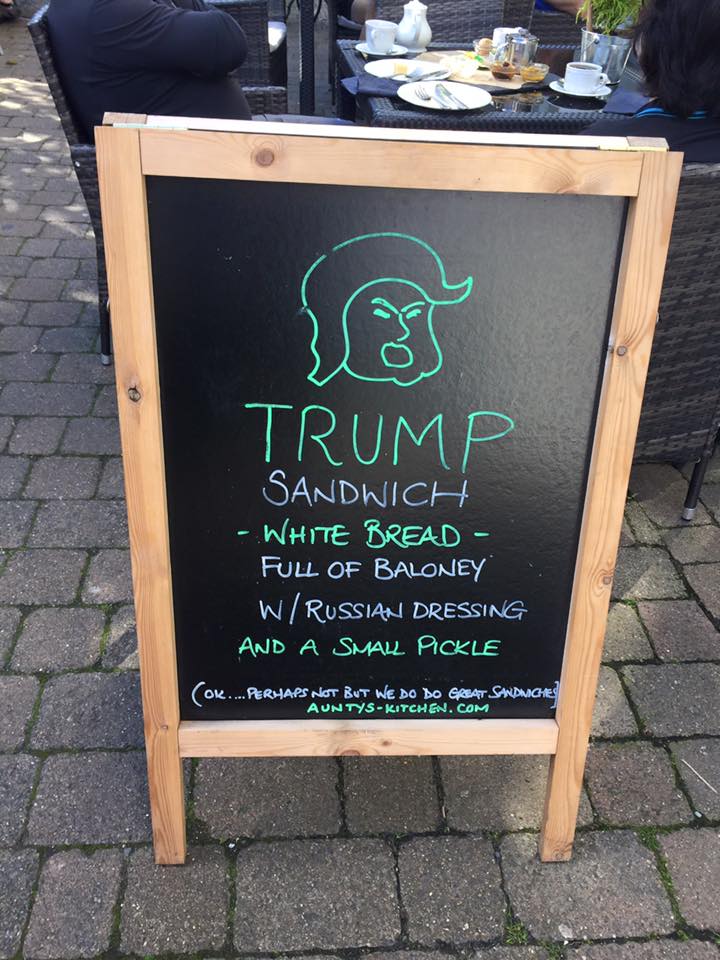 TRUMP
SANDWICH
- WHITE BREAD -
FULL OF BALONEY
W/ RUSSIAN DRESSING
AND A SMALL PICKLE
(OK.... PERHAPS NOT BUT WE DO DO GREAT SANDWICHES)
AUNTYS-KITCHEN.COM